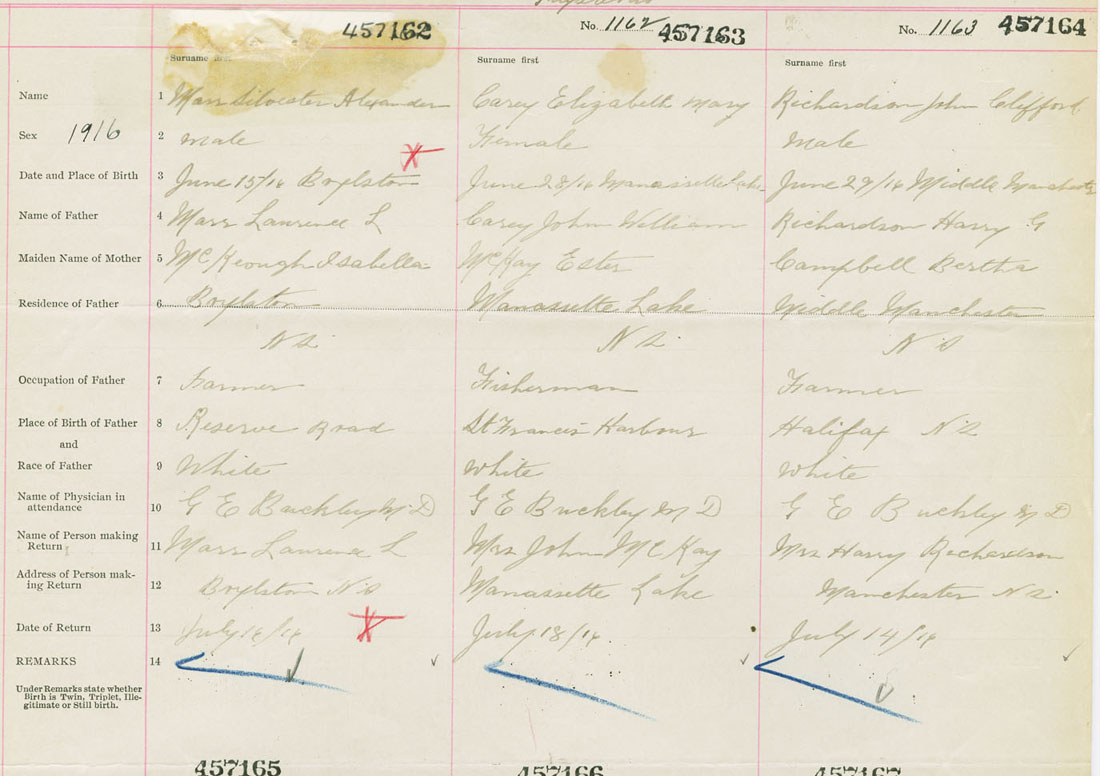 457162 No. 1162 457163 No. 1163 457164
Surname first Surname first Surname first
Name 1 Marr Silvester Alexander Carey Elizabeth Mary Richardson John Clifford
Sex 1916 2 Male Female Male
Date and Place of Birth 3 June 15/16 Boylston June 28/16 Manassette Lake June 29/16 Middle Manchester
Name of Father 4 Marr Laurence L Carey John William Richardson Harry G
Maiden Name of Mother 5 McKeough Isabella McKay Ester Campbell Bertha
Residence of Father 6 Boylston Manassette Lake Middle Manchester
N S. N S. N S
Occupation of Father 7 Farmer Fisherman Farmer
Place of Birth of Father 8 Reserve Road St Francis Harbour Halifax N S
and
Race of Father 9 White White White
Name of Physician in
attendance 10 G E Buckley M D G E Buckley M D G E Buckley M D
Name of Person making
Return 11 Marr Laurence L Mrs John McKay Mrs Harry Richardson
Address of Person mak-
ing Return 12 Boylston N S Manassette Lake Manchester N S.
Date of Return 13 July 18/16 July 14/16
REMARKS 14
Under Remarks state whether
Birth is Twin, Triplet, Ille-
gitimate or Still birth.
457165 457166 457167